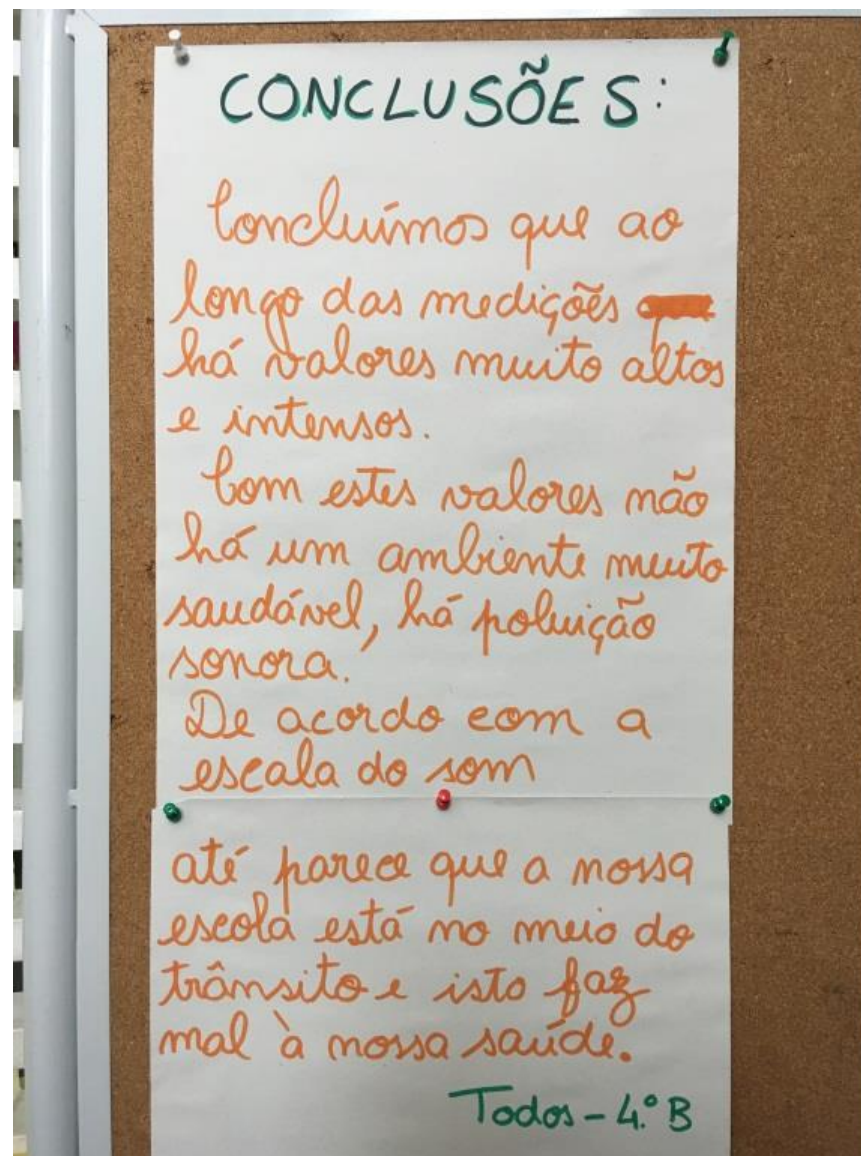 CONCLUSÕES:
Concluímos que ao
longo das medições
há valores muito altos
e intensos.
Com estes valores não
há um ambiente muito
saudável, há poluição
sonora.
De acordo com a
escala do som
até parece que a nossa
escola está no meio do
trânsito e isto faz
mal à nossa saúde.
Todos - 4.º B